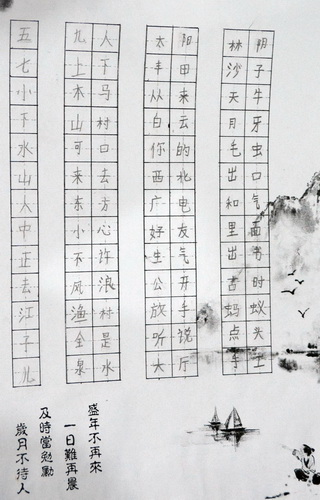 五 九人 太阳 林阴
七 上下 丰甲 沙子
小 木马 从来 天牛
下 山村 白云 月牙
水 可口 你的 毛虫
山 来去 西北 出口
人 东方 广电 和气
中 小心 好友 里面
正 不许 生气 出书
去 风浪 公开 古时
江 渔村 放手 蚂蚁
子 全是 听说 点头
儿 泉水 大厅 手工
盛年不再來
一日難再晨
及時當勉勵
歲月不待人